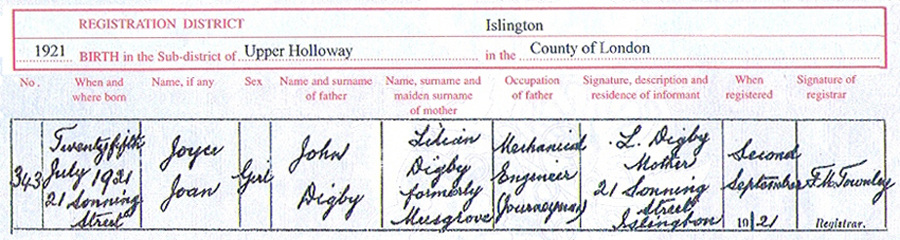 REGISTRATION DISTRICT Islington
1921 BIRTH in the Sub-district of Upper Holloway in the County of London
No. When and where born Name, if any Sex Name and surname of father Name, surname and maiden surname of mother Occupation of father Signature, description and residence of informant When registered Signature of registrar
343
Twenty fifth
July 1921
21 Sonning
Street
Joyce
Joan
Girl
John
Digby
Lilian
Digby
formerly
Musgrove
Mechanical
Engineer
(Journeyman)
L. Digby
Mother
21 Sonning
Street
Islington
Second
September
1921
F.W. Townley
Registrar.